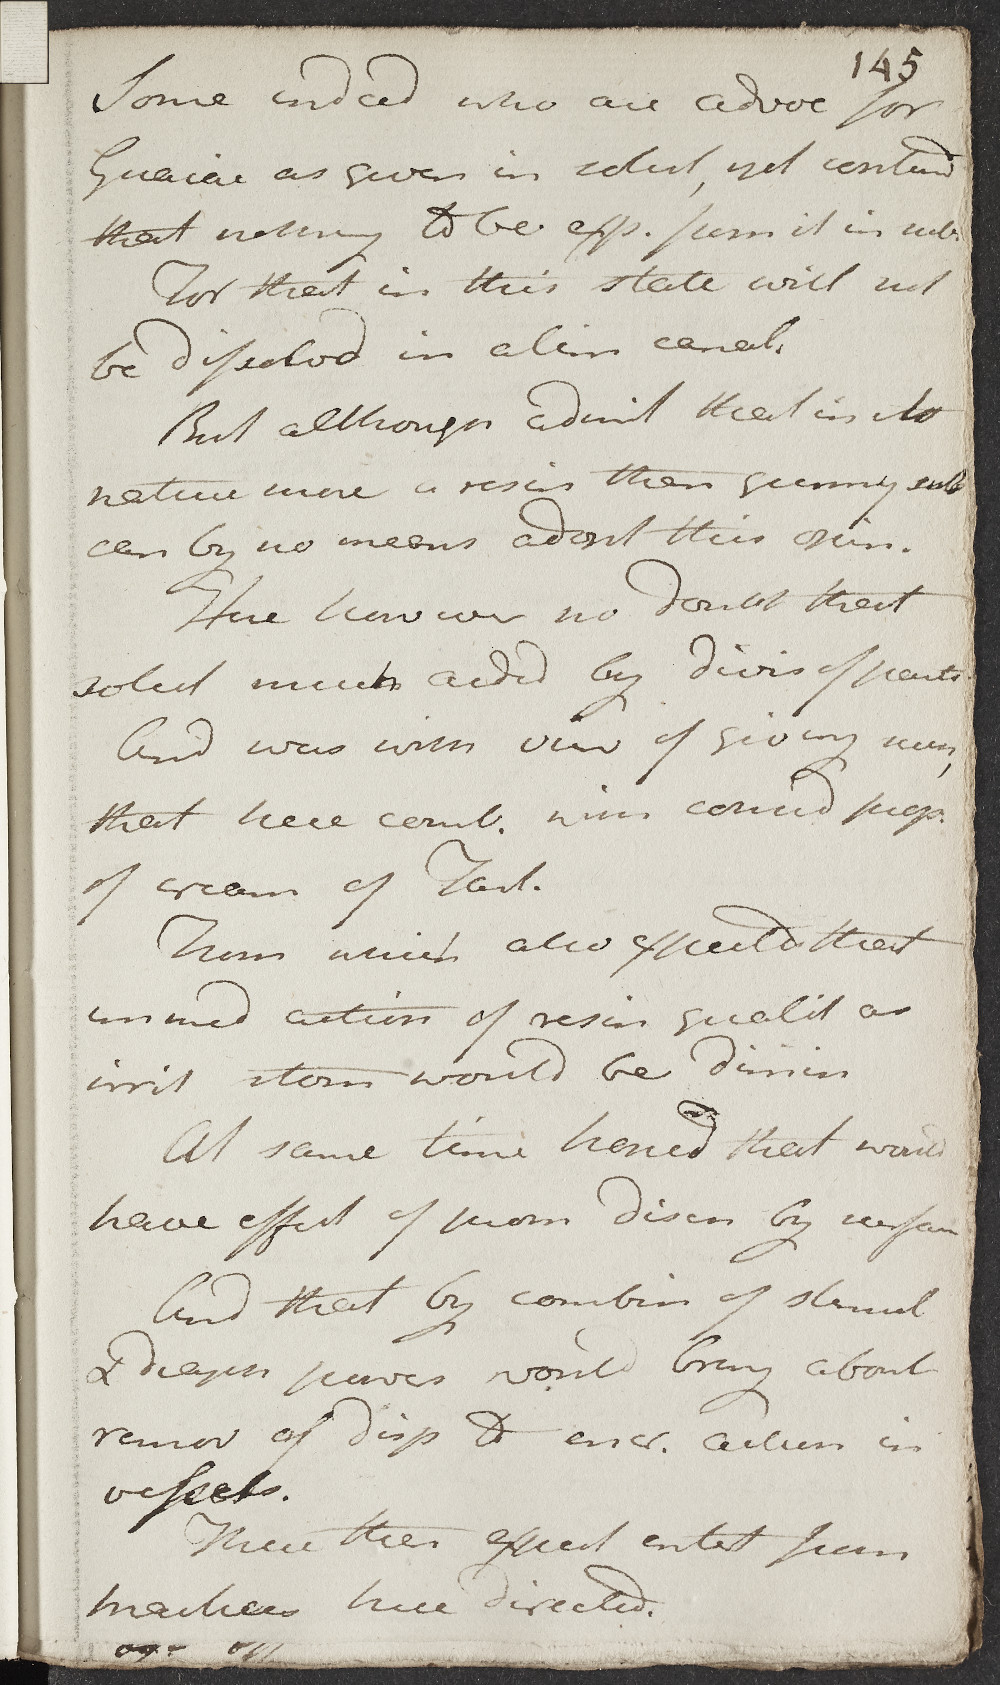 145
Some indeed who are advoc for
Guaiac as given in solut, yet contend
that nothing to be exp. from it in sub.
For that in this state will not
be dissolvd in alim canal.
But although admit that in its
nature more a resin than gummy sub
can by no means adopt this opin.
Here however no doubt that
solut much aided by divis of parts
And was with view of giving
that here comb. with considd prop.
of cream of Tart.
From which also expectd that
immed action of resin qualit as
irrit stom would be dimin
At same time hoped that would
have effect of prom disch by
And that by combin of stimul
& diaph powers would bring about
remov of disp to incr. action in
vessels.
These then expect entert from
practices here directed.